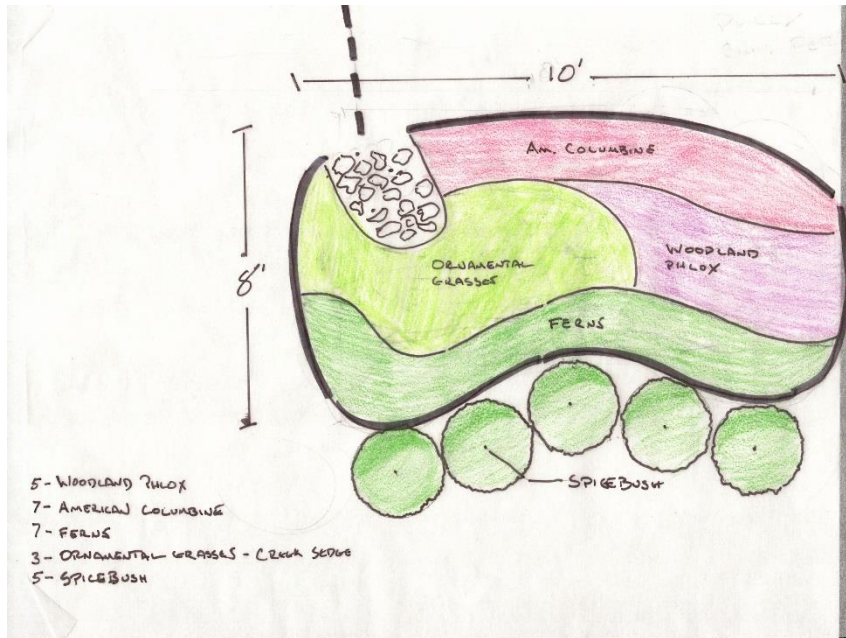 10'
AM. COLUMBINE
8'
ORNAMENTAL
GRASSES
WOODLAND
PHLOX
FERNS
SPICEBUSH
5- WOODLAND PHLOX
7- AMERICAN COLUMBINE
7- FERNS
3- ORNAMENTAL GRASSES - CREEK SEDGE
5- SPICEBUSH